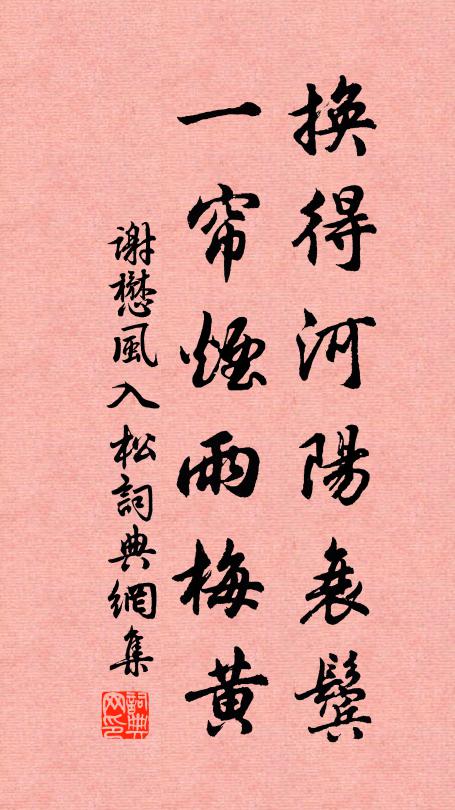 換得河陽衰鬢
一帘煙雨梅黃
謝懋風入松詞典網集
詞典网印